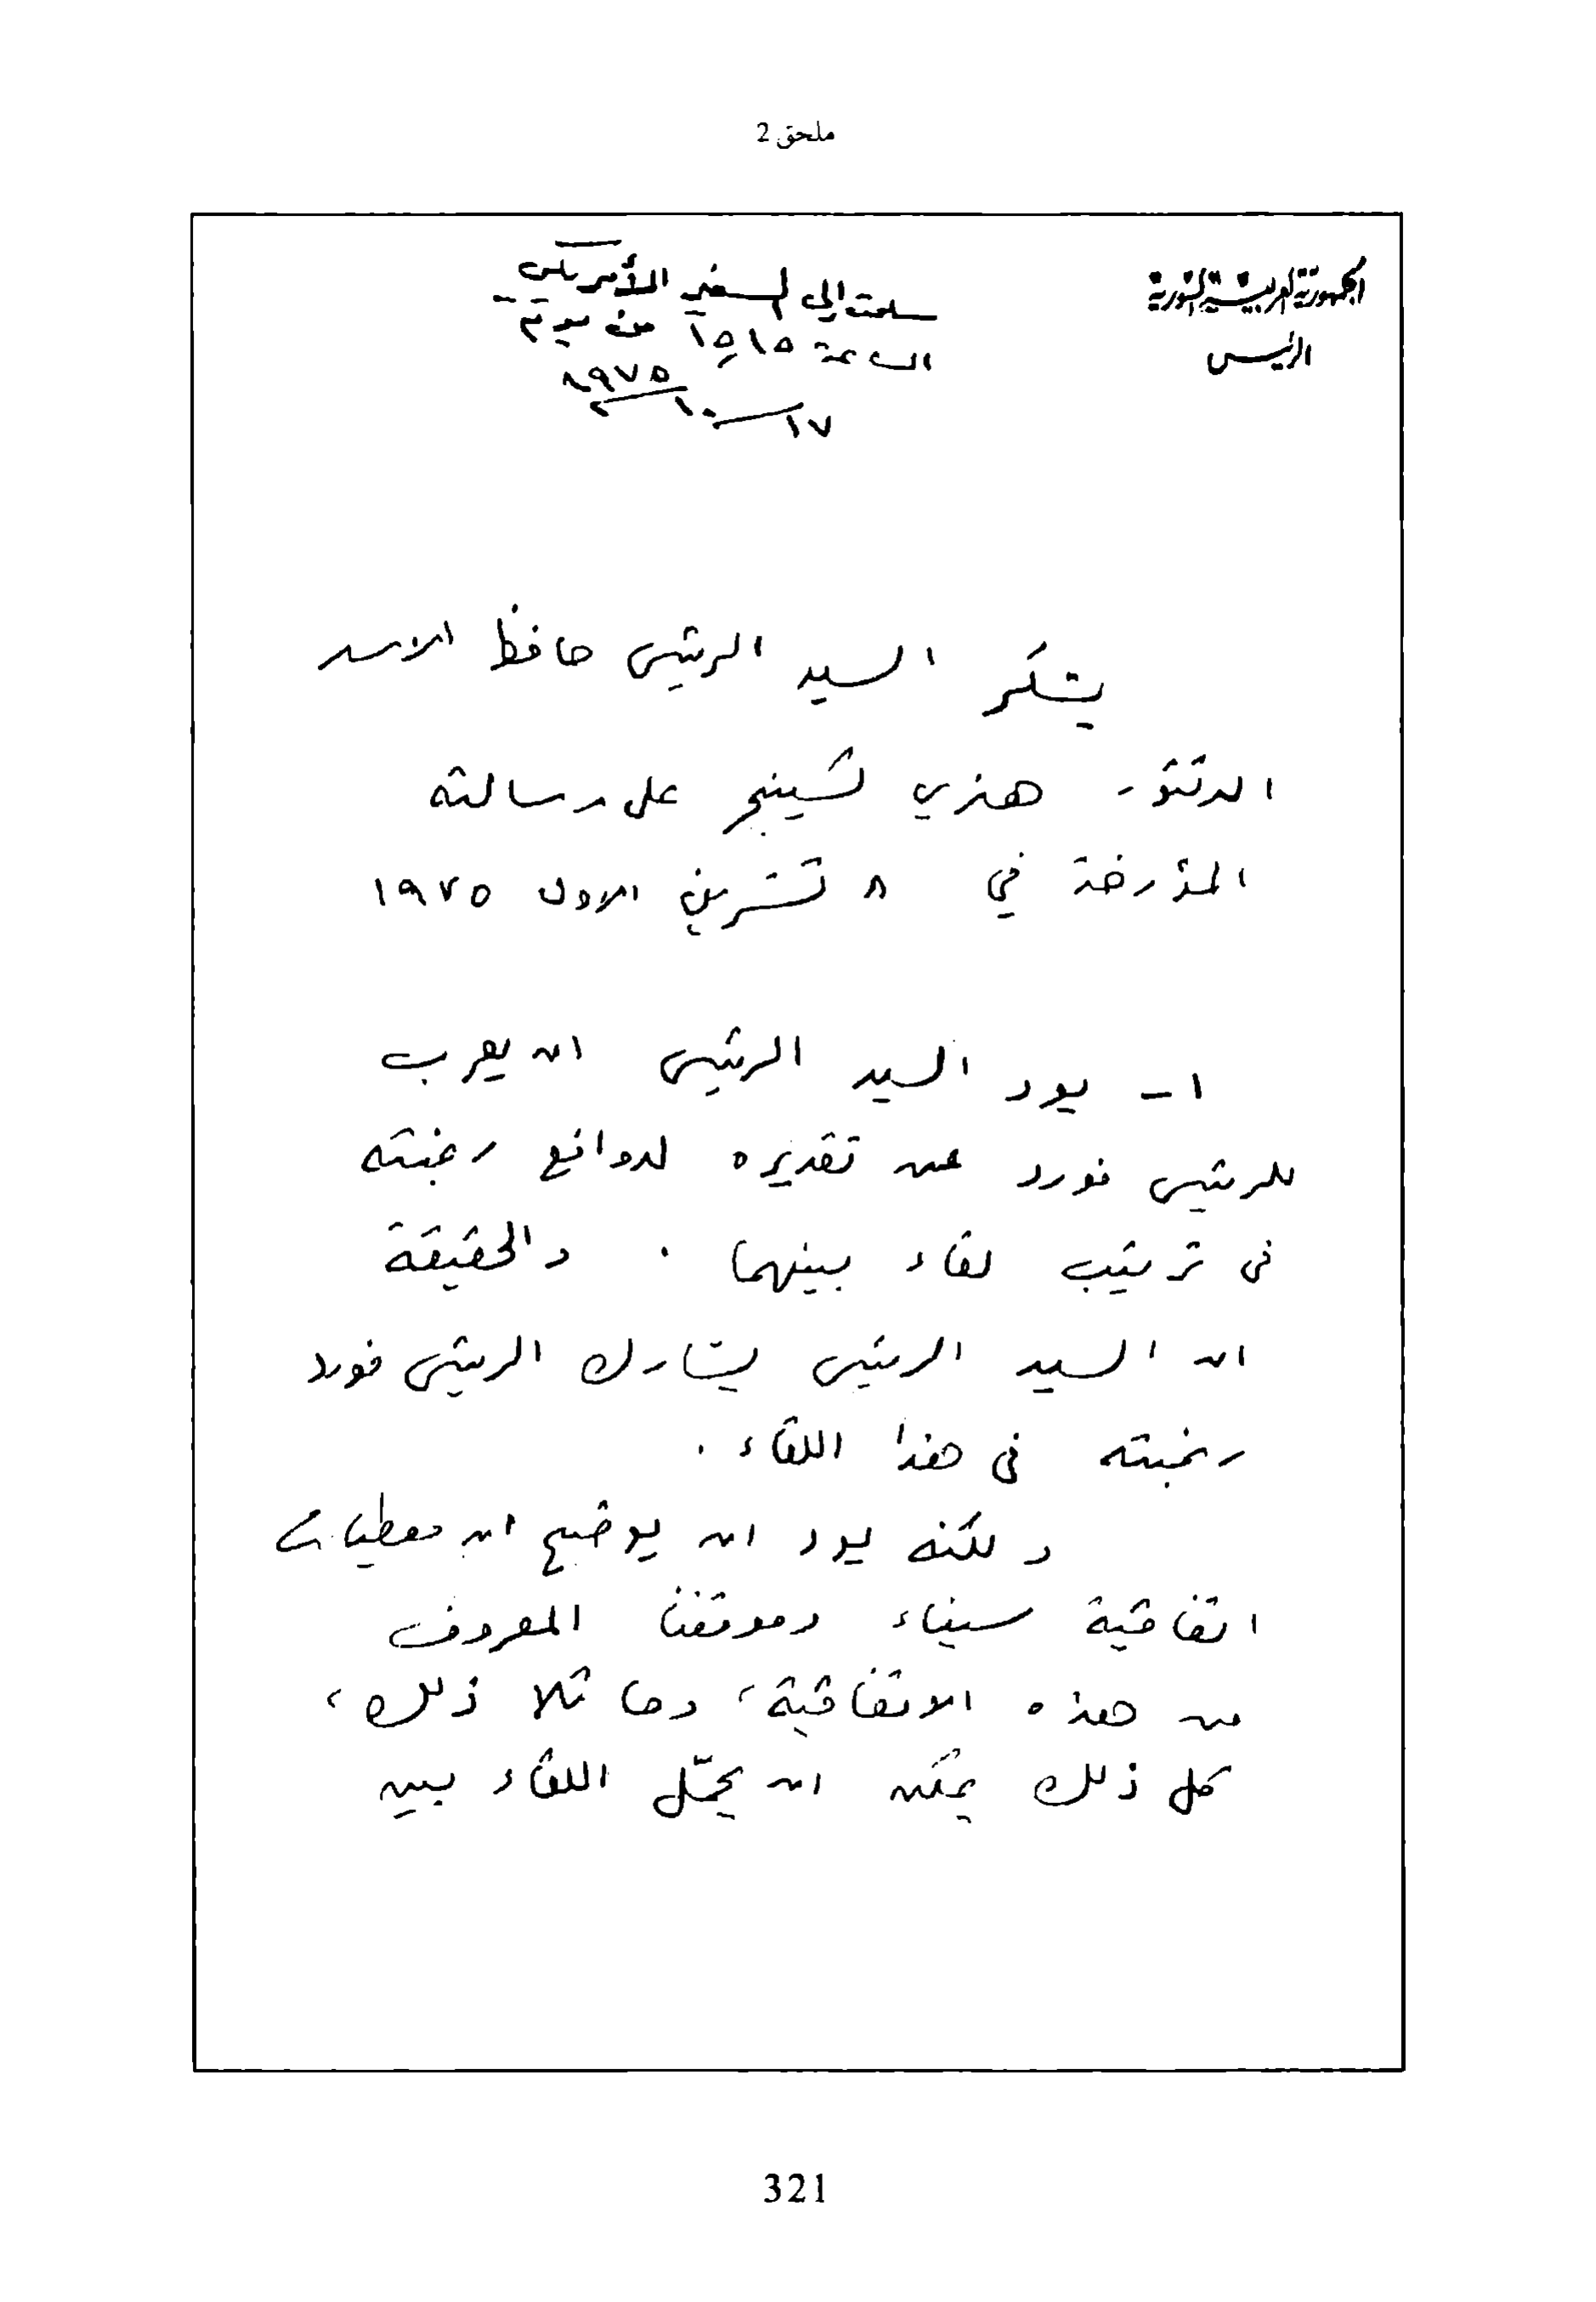 ملحق 2
الجمهورية العربية السورية
الرئيس
سلمت إلى السفير الأمريكي
الساعة ١٥١٥ من يوم
١٧/١٠/١٩٧٥
يشكر السيد الرئيس حافظ الاسد
الدكتور هنري كسينجر على رسالته
المؤرخة في ٨ تشرين الاول ١٩٧٥
١- يود السيد الرئيس ان يعرب
للرئيس فورد عن تقديره لدوافع رغبته
في ترتيب لقاء بينهما . والحقيقة
ان السيد الرئيس يشارك الرئيس فورد
رغبته في هذا اللقاء .
ولكنه يود ان يوضح ان معطيات
اتفاقية سيناء وموقفنا المعروف
من هذه الاتفاقية، وما تلا ذلك،
كل ذلك يمكن ان يحمّل اللقاء بين
321